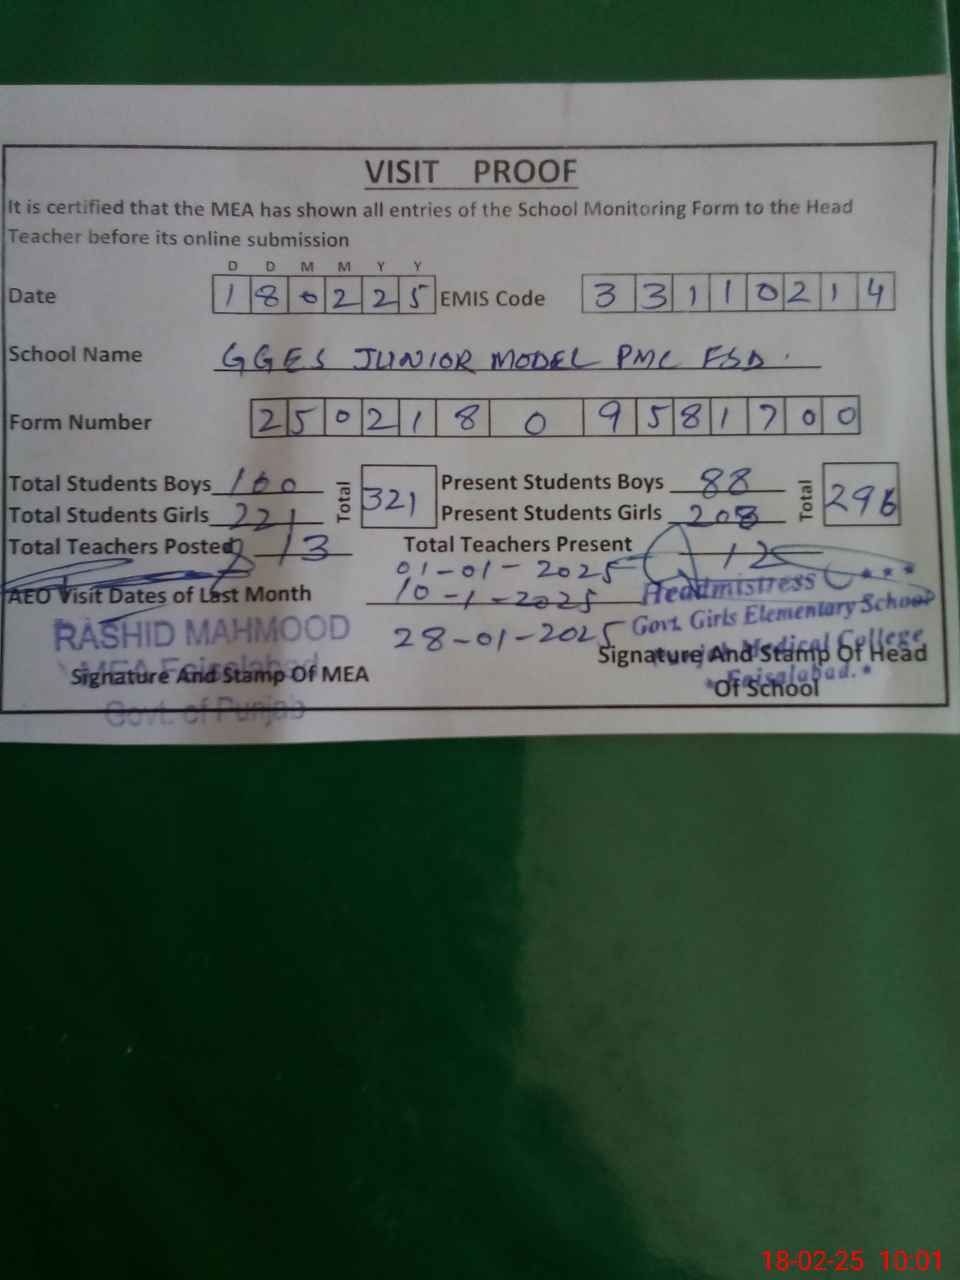 VISIT PROOF
It is certified that the MEA has shown all entries of the School Monitoring Form to the Head
Teacher before its online submission
D D M M Y Y
Date 1 8 0 2 2 5 EMIS Code 3 3 1 1 0 2 1 4
School Name GGES JUNIOR MODEL PMC FSD.
Form Number 2 5 0 2 1 8 0 9 5 8 1 7 0 0
Total Students Boys 100 Total 321 Present Students Boys 88 Total 296
Total Students Girls 221 Present Students Girls 208
Total Teachers Posted 13 Total Teachers Present 12
01-01-2025
AEO Visit Dates of Last Month 10-1-2025
28-01-2025
Headmistress
Govt. Girls Elementary School
Punjab Medical College
Faisalabad.
RASHID MAHMOOD
MEA Faisalabad
Govt. of Punjab
Signature And Stamp Of MEA
Signature And Stamp Of Head
Of School
18-02-25 10:01